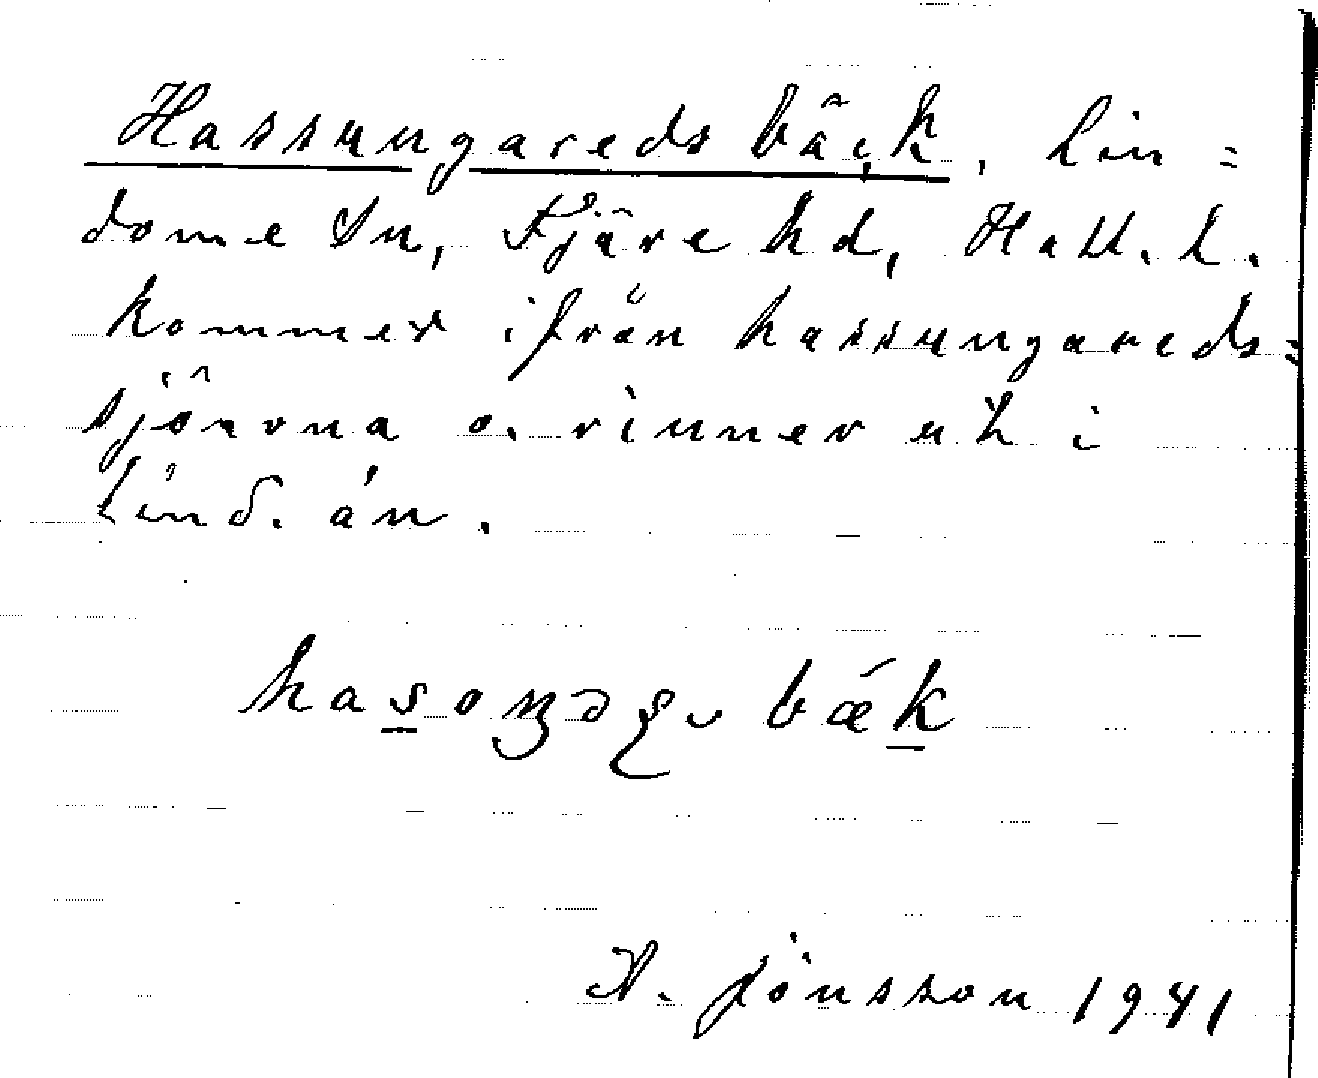 Hassungareds bäck, Lin=
dome sn, Fjäre hd, Hall. l.
kommer ifrån hassungareds=
sjöarna o. rinner ut i
Lind. ån.
bǽk
A. Jönsson 1941